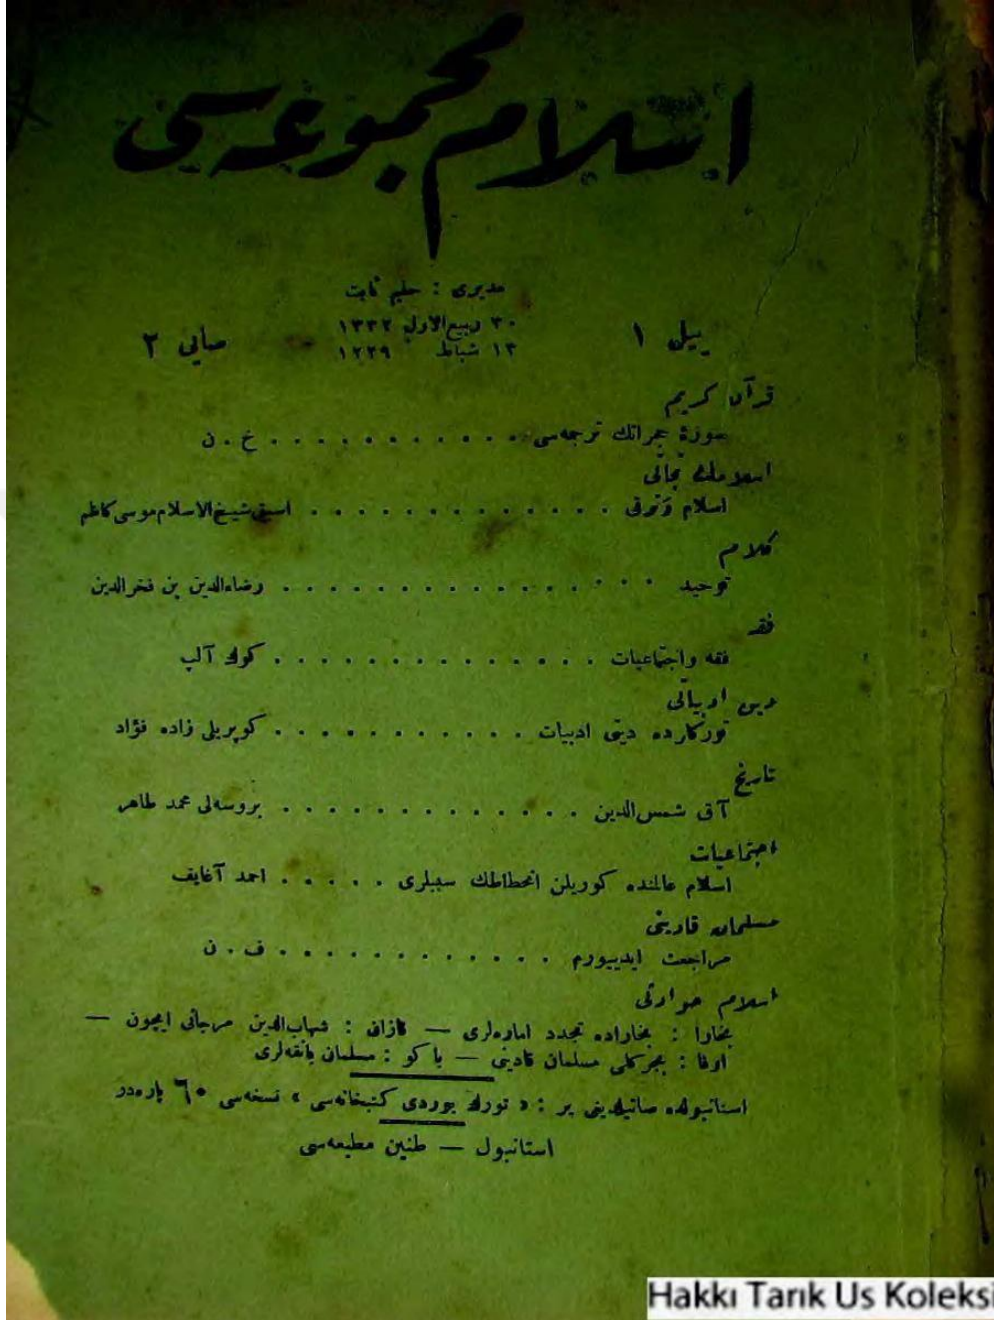 اسلام مجموعه‌سی
مدیری : حلیم ثابت
ییل ۱
۳۰ ربیع‌الاول ۱۳۳۲
۱۳ شباط ۱۳۲۹
صایی ۲
قرآن کریم
سورۀ حجراتك ترجمه‌سی . . . . . . . . . . . . خ . ن
اسلام و ترقی . . . . . . . . . . . . . اسبق شیخ‌الاسلام موسی کاظم
کلام
توحید . . . . . . . . . . . . . . . رضاءالدین بن فخرالدین
فقه
فقه و اجتماعیات . . . . . . . . . . . . . . کوك آلپ
دین ادبیاتی
تورکلرده دینی ادبیات . . . . . . . . . . . کوپریلی زاده فؤاد
تاریخ
آق شمس‌الدین . . . . . . . . . . . . . بروسه‌لی محمد طاهر
اجتماعیات
اسلام عالمنده کوریلن انحطاطك سببلری . . . . . احمد آغایف
مسلمان قادینی
مراجعت ایدییورم . . . . . . . . . . . . ف . ن
اسلام حوادثی
بخارا : بخاراده تجدد اماره‌لری — قازان : شهاب‌الدین مرجانی ایچون —
اوفا : مسلمان قادینی — باکو : مسلمان بانقه‌لری
استانبولده صاتیلدیغی یر : « تورك یوردی کتبخانه‌سی » نسخه‌سی ۶۰ پاره‌در
استانبول — طنین مطبعه‌سی
Hakkı Tarık Us Koleksi